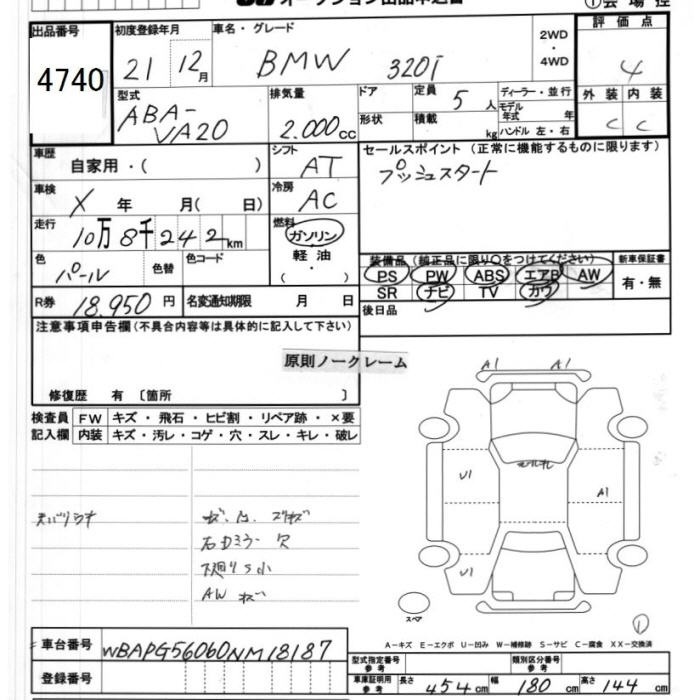 オークション出品申込書
①会場控
出品番号
4740
初度登録年月
21 12月
車名・グレード
BMW 320i
2WD
・
4WD
評価点
4
型式
ABA-
VA20
排気量
2.000cc
ドア
定員 5人
形状
積載 kg
ディーラー・並行
モデル年式 年
ハンドル 左・右
外装 内装
C C
車歴
自家用・( )
シフト
AT
セールスポイント (正常に機能するものに限ります)
プッシュスタート
車検
X 年 月( 日)
冷房
AC
走行
10万8千242km
燃料
ガソリン
軽油
・
( )
色
パール
色替
色コード
装備品 (純正品に限り○をつけてください)
PS PW ABS エアB AW
SR ナビ TV カワ
新車保証書
有・無
R券 18.950円
名変通知期限 月 日
後日品
注意事項申告欄(不具合内容等は具体的に記入して下さい)
原則ノークレーム
修復歴 有 〔箇所 〕
検査員
記入欄
FW キズ・飛石・ヒビ割・リペア跡・×要
内装 キズ・汚レ・コゲ・穴・スレ・キレ・破レ
石Dミラー欠
下廻りS小
AW キズ
A1 A1
U1
A1
U1
スペア
①
A-キズ E-エクボ U-凹み W-補修跡 S-サビ C-腐食 XX-交換済
車台番号
WBAPG56060NM18187
登録番号
型式指定番号
参考
類別区分番号
参考
車庫証明用
参考
長さ 454cm 幅 180cm 高さ 144cm